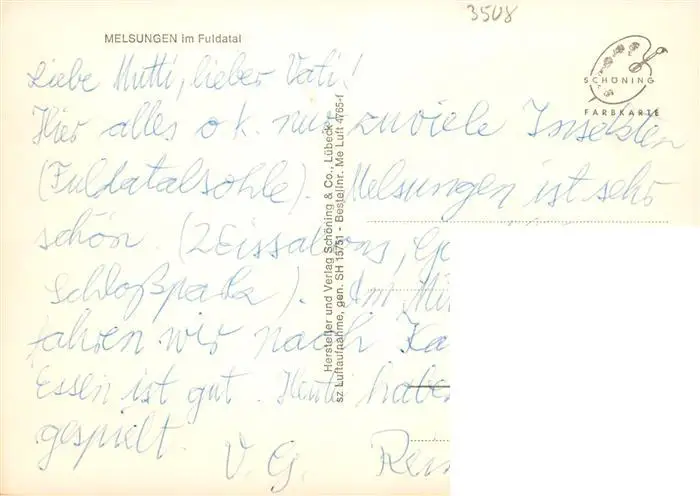 3508
MELSUNGEN im Fuldatal
SCHÖNING
FARBKARTE
Liebe Mutti, lieber Vati!
Hier alles o k. nur zuviele Insekten
(Fuldatalsohle). Melsungen ist sehr
schön. (2 Eissalons,
Schloßpark). Am
fahren wir nach
Essen ist gut. Heute
gespielt.
V. G.
Hersteller und Verlag Schöning & Co., Lübeck
sz Luftaufnahme, gen. SH 15/751 - Bestellnr. Me Luft 4765-f